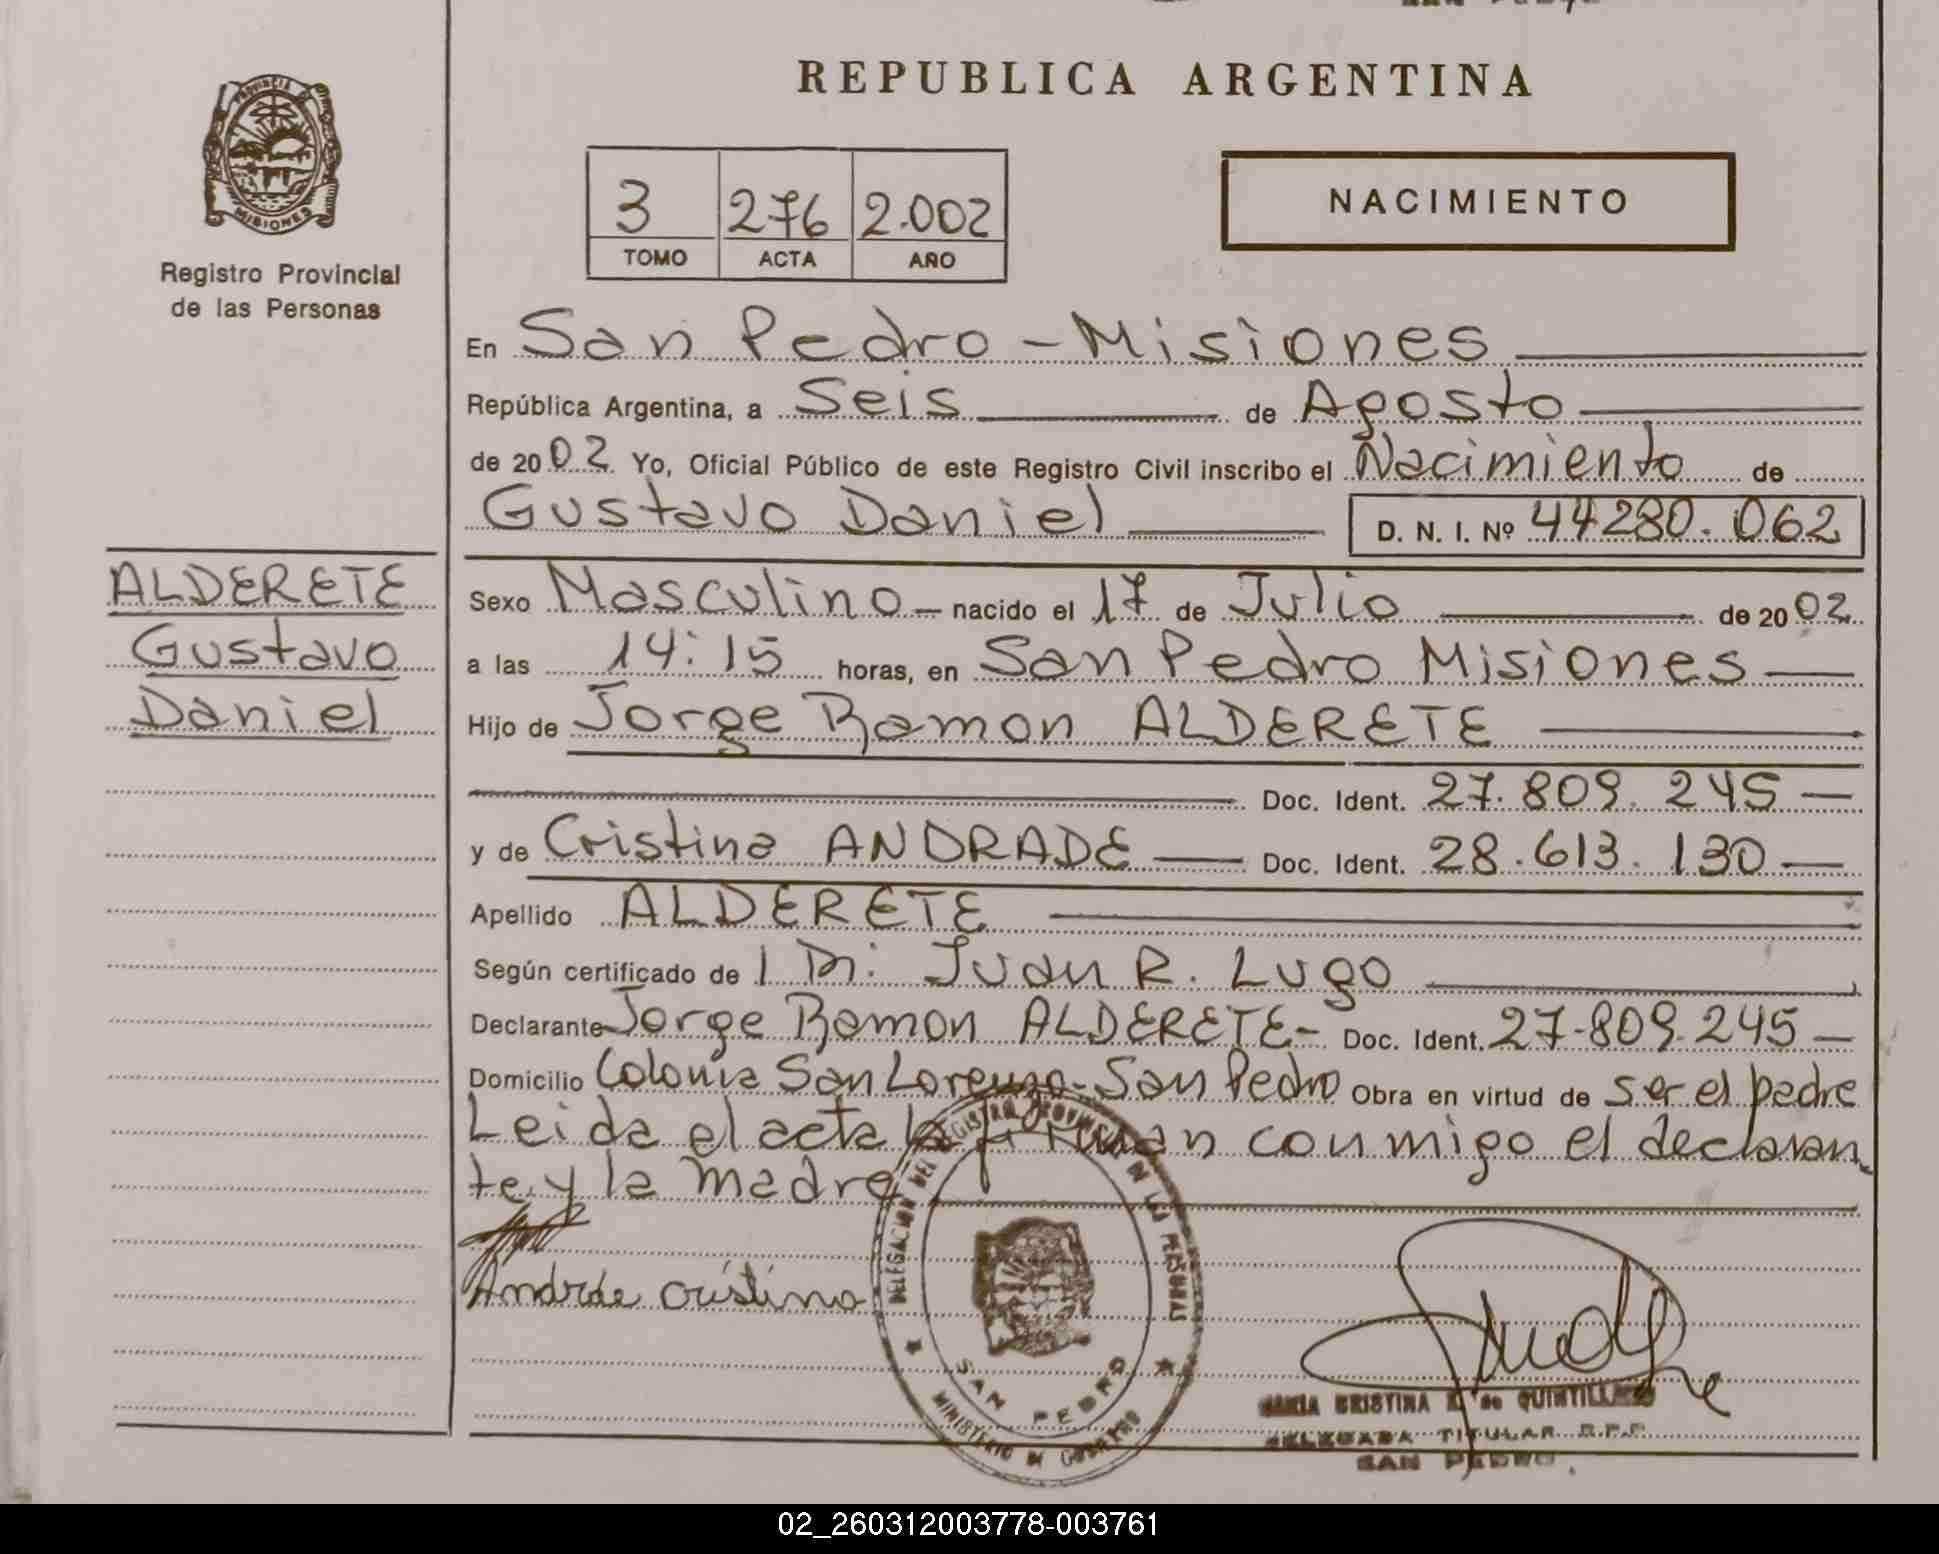 REPUBLICA ARGENTINA
PROVINCIA DE
MISIONES
Registro Provincial
de las Personas
3 276 2.002
TOMO ACTA AÑO
NACIMIENTO
En San Pedro - Misiones
República Argentina, a Seis de Agosto
de 2002 Yo, Oficial Público de este Registro Civil inscribo el Nacimiento de
Gustavo Daniel D. N. I. Nº 44280.062
ALDERETE
Gustavo
Daniel
Sexo Masculino nacido el 17 de Julio de 2002
a las 14:15 horas, en San Pedro Misiones
Hijo de Jorge Ramon ALDERETE
Doc. Ident. 27.809.245
y de Cristina ANDRADE Doc. Ident. 28.613.130
Apellido ALDERETE
Según certificado de Juan R. Lugo
Declarante Jorge Ramon ALDERETE - Doc. Ident. 27-809.245
Domicilio Colonia San Lorenzo - San Pedro Obra en virtud de ser el padre
Leida el acta la firman conmigo el declaran
te y la madre
Andrade Cristina
DELEGACION DEL REGISTRO PROVINCIAL DE LAS PERSONAS
SAN PEDRO
MINISTERIO DE GOBIERNO
MARIA CRISTINA de
DELEGADA TITULAR R.P.P.
SAN PEDRO
02_260312003778-003761